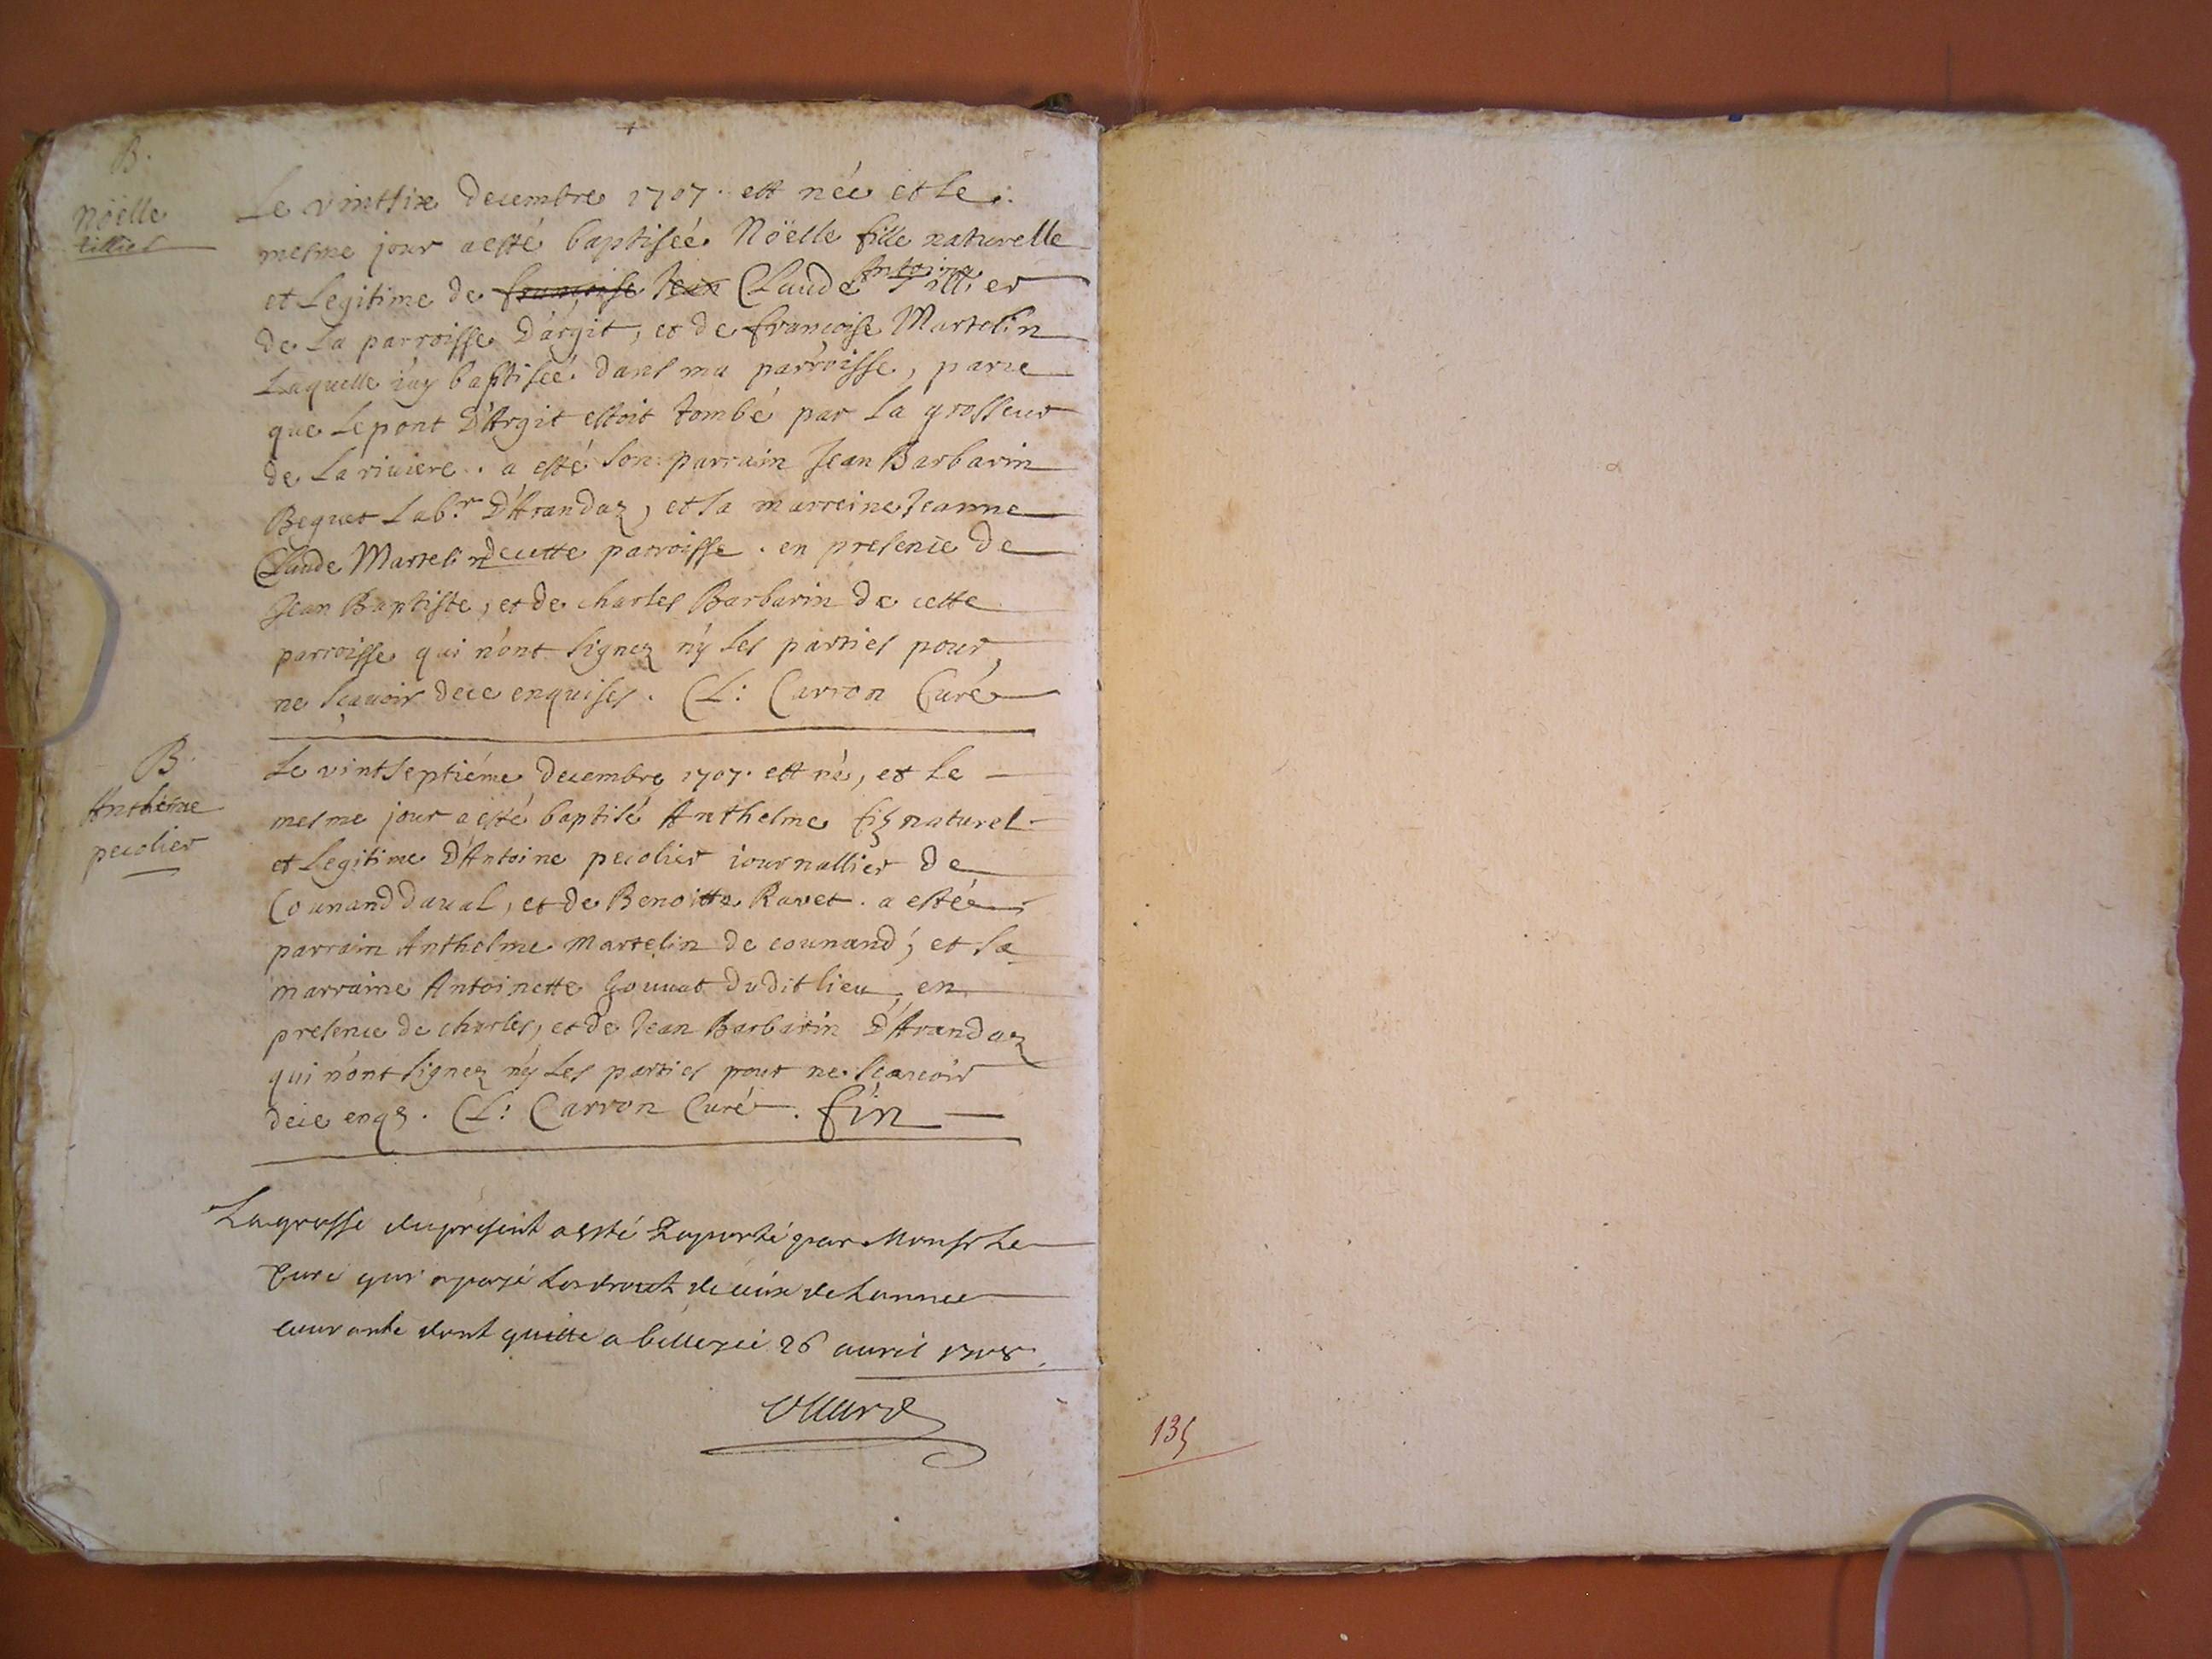 B.
Nöelle
tillier
Le vintsix decembre 1707. est née et le
mesme jour a esté baptiseé Nöelle fille naturelle
et Legitime de françoise Jean Claude Antoine Tillier
de La parroisse D'argit, et de françoise Martelin
Laquelle i'ay baptiseé dans ma parroisse, parce
que Le pont D'Argit estoit tombé par La grosseur
de La riuiere. a esté son parrain Jean Barbarin
Beguet Lab.r D'Arandaz, et sa marreine Jeanne
Claude Martelin de cette parroisse. en presence de
Jean Baptiste, et de charles Barbarin de cette
parroisse qui n'ont signez n'y Les parties pour
ne sçauoir de ce enquises. Cl: Carron Curé
B.
Anthelme
pecolier
Le vintseptiéme decembre 1707. est né, et Le
mesme jour a esté baptisé Anthelme fiz naturel
et Legitime D'Antoine pecolier iournallier de
Counand d'aual, et de Benoitte Ravet. a esté
parrain Anthelme Martelin de counand, et sa
marraine Antoinette Gouuat dudit lieu, en
presence de charles, et de Jean Barbarin D'Arandaz
qui n'ont signez n'y Les parties pour ne sçauoir
de ce enqs. Cl: Carron Curé. fin
La grosse du present a esté Raporté par Monsr Le
Curé qui a payé Les droits de ceux de Lannee
courante dont quitte a belley ce 26 auril 1708.
135